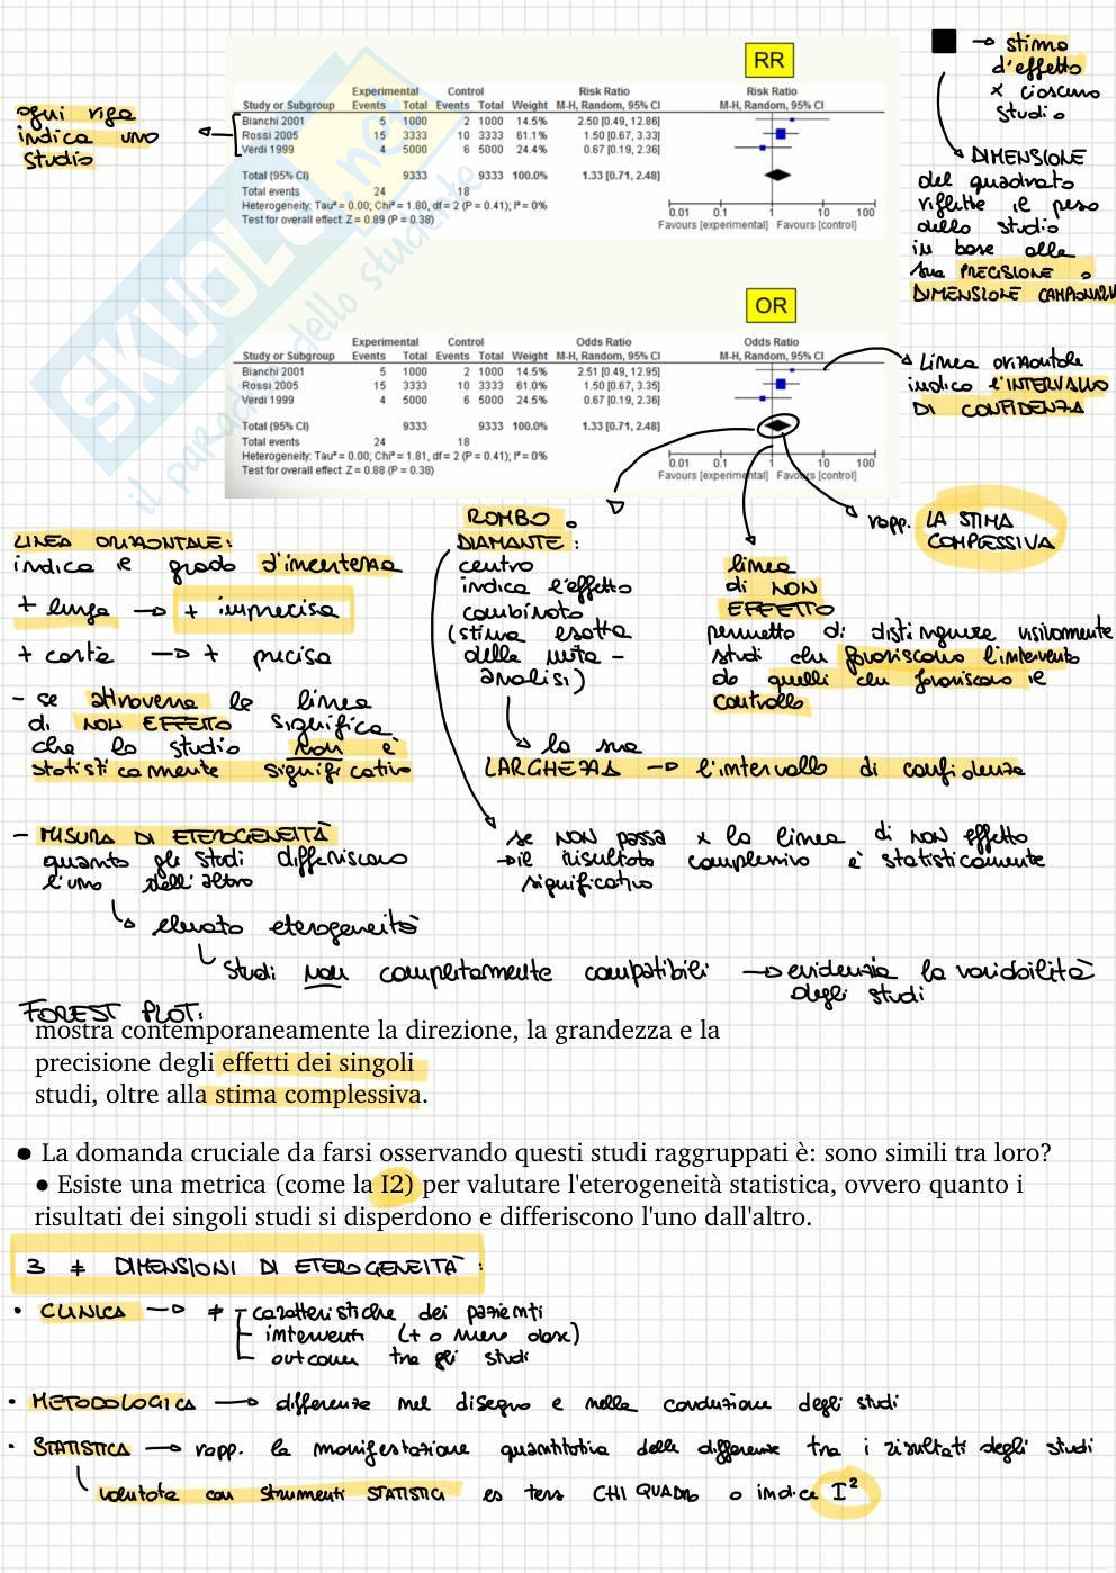 RR
Experimental Control Risk Ratio Risk Ratio
Study or Subgroup Events Total Events Total Weight M-H, Random, 95% CI M-H, Random, 95% CI
Bianchi 2001 5 1000 2 1000 14.5% 2.50 [0.49, 12.86]
Rossi 2005 15 3333 10 3333 61.1% 1.50 [0.67, 3.33]
Verdi 1999 4 5000 6 5000 24.4% 0.67 [0.19, 2.36]
Total (95% CI) 9333 9333 100.0% 1.33 [0.71, 2.48]
Total events 24 18
Heterogeneity: Tau² = 0.00; Chi² = 1.80, df = 2 (P = 0.41); I² = 0%
Test for overall effect Z = 0.89 (P = 0.38)
0.01 0.1 1 10 100
Favours [experimental] Favours [control]
ogni riga
indica uno
studio
→ stima
d'effetto
x ciascuno
studio
DIMENSIONE
del quadrato
riflette il peso
dello studio
in base alla
sua PRECISIONE o
DIMENSIONE CAMPIONARIA
OR
Experimental Control Odds Ratio Odds Ratio
Study or Subgroup Events Total Events Total Weight M-H, Random, 95% CI M-H, Random, 95% CI
Bianchi 2001 5 1000 2 1000 14.5% 2.51 [0.49, 12.95]
Rossi 2005 15 3333 10 3333 61.0% 1.50 [0.67, 3.35]
Verdi 1999 4 5000 6 5000 24.5% 0.67 [0.19, 2.36]
Total (95% CI) 9333 9333 100.0% 1.33 [0.71, 2.48]
Total events 24 18
Heterogeneity: Tau² = 0.00; Chi² = 1.81, df = 2 (P = 0.41); I² = 0%
Test for overall effect Z = 0.88 (P = 0.38)
0.01 0.1 1 10 100
Favours [experimental] Favours [control]
Linea orizzontale
indica l'INTERVALLO
DI CONFIDENZA
SKUOLA.net
il paradiso dello studente
rapp. LA STIMA
COMPLESSIVA
LINEA ORIZZONTALE:
indica il grado d'incertezza
+ lunga → + imprecisa
+ corta → + precisa
- se attraversa la linea
di NON EFFETTO significa
che lo studio non è
statisticamente significativo
ROMBO o
DIAMANTE:
centro
indica l'effetto
combinato
(stima esatta
della meta-
analisi)
la sua
LARGHEZZA → l'intervallo di confidenza
linea
di NON
EFFETTO
permette di distinguere visivamente
studi che favoriscono l'intervento
da quelli che favoriscono il
controllo
se NON passa x la linea di non effetto
→ il risultato complessivo è statisticamente
significativo
- MISURA DI ETEROGENEITÀ
quanto gli studi differiscono
l'uno dall'altro
elevata eterogeneità
studi non completamente compatibili → evidenzia la variabilità
degli studi
FOREST PLOT:
mostra contemporaneamente la direzione, la grandezza e la
precisione degli effetti dei singoli
studi, oltre alla stima complessiva.
● La domanda cruciale da farsi osservando questi studi raggruppati è: sono simili tra loro?
● Esiste una metrica (come la I2) per valutare l'eterogeneità statistica, ovvero quanto i
risultati dei singoli studi si disperdono e differiscono l'uno dall'altro.
3 ≠ DIMENSIONI DI ETEROGENEITÀ:
• CLINICA → ≠ caratteristiche dei pazienti
interventi (+ o meno dose)
outcome tra gli studi
• METODOLOGICA → differenze nel disegno e nella conduzione degli studi
• STATISTICA → rapp. la manifestazione quantitativa delle differenze tra i risultati degli studi
valutata con strumenti STATISTICI es test CHI QUADRO o indice I²